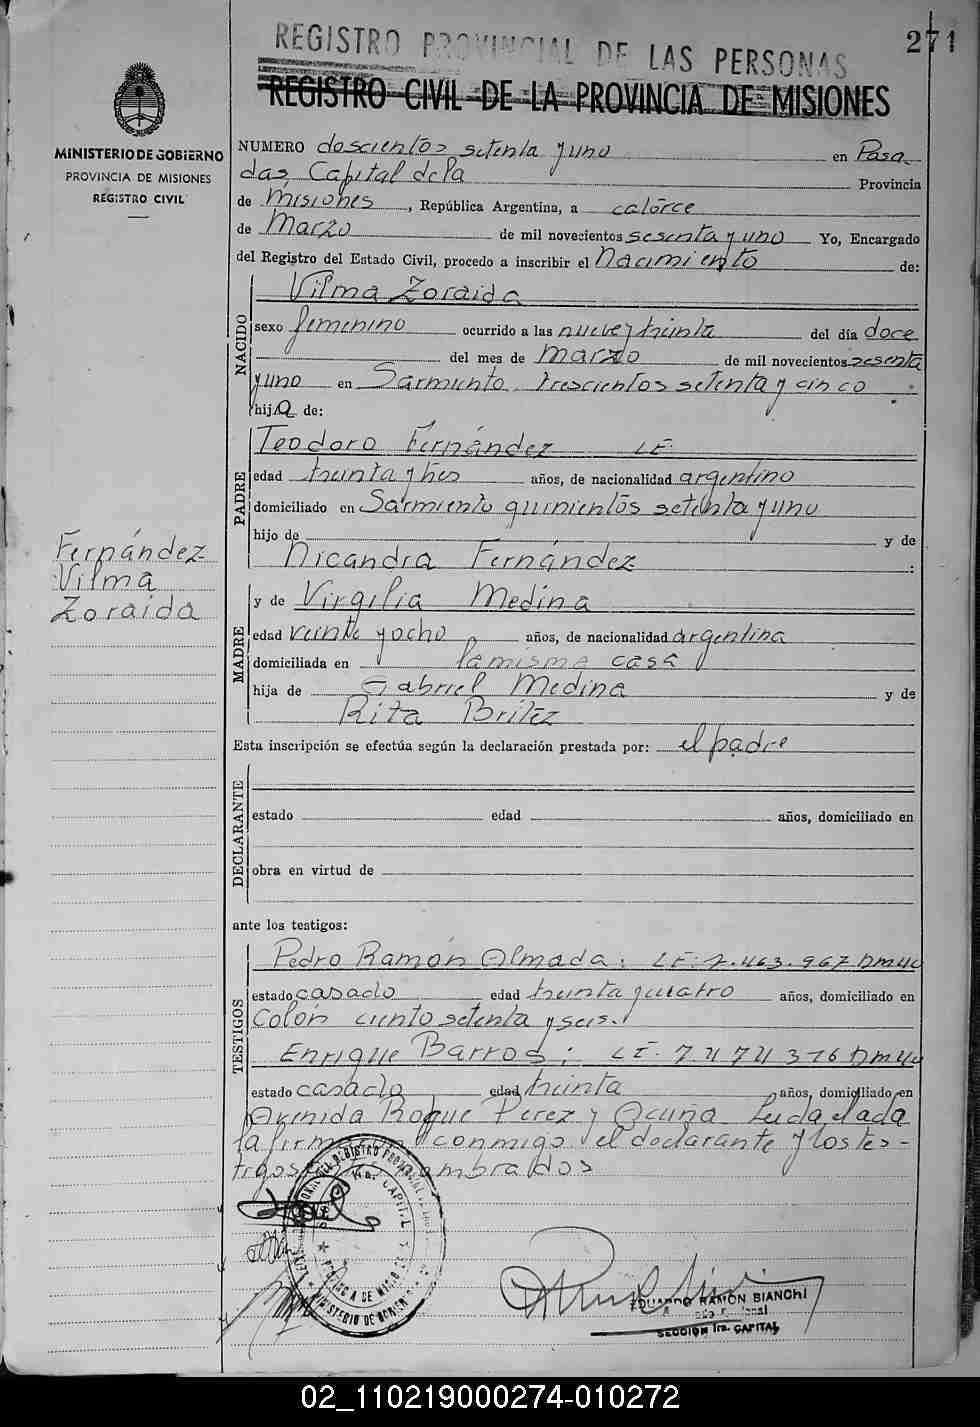 REGISTRO PROVINCIAL DE LAS PERSONAS
271
REGISTRO CIVIL DE LA PROVINCIA DE MISIONES
MINISTERIO DE GOBIERNO
PROVINCIA DE MISIONES
REGISTRO CIVIL
NUMERO doscientos setenta y uno en Posa-
das, Capital de la Provincia
de Misiones, República Argentina, a catorce
de Marzo de mil novecientos sesenta y uno Yo, Encargado
del Registro del Estado Civil, procedo a inscribir el Nacimiento de:
NACIDO
Vilma Zoraida
sexo femenino ocurrido a las nueve y treinta del día doce
del mes de marzo de mil novecientos sesenta
y uno en Sarmiento trescientos setenta y cinco
hija de:
PADRE
Teodoro Fernández LE
edad treinta y tres años, de nacionalidad argentino
domiciliado en Sarmiento quinientos setenta y uno
hijo de y de
Nicandra Fernández
Fernández
Vilma
Zoraida
MADRE
y de Virgilia Medina
edad veinte y ocho años, de nacionalidad argentina
domiciliada en la misma casa
hija de Gabriel Medina y de
Rita Britez
Esta inscripción se efectúa según la declaración prestada por: el padre
DECLARANTE
estado edad años, domiciliado en
obra en virtud de
ante los testigos:
TESTIGOS
Pedro Ramón Almada: LE: 7.463.967 DM40
estado casado edad treinta y cuatro años, domiciliado en
Colón ciento setenta y seis.
Enrique Barros: LE. 7474376 DM40
estado casado edad treinta años, domiciliado en
Avenida Roque Perez y Acuña Leida el acta
la firman conmigo el declarante y los tes-
tigos nombrados
EDUARDO RAMÓN BIANCHI
SECCION 1ra. CAPITAL
02_110219000274-010272